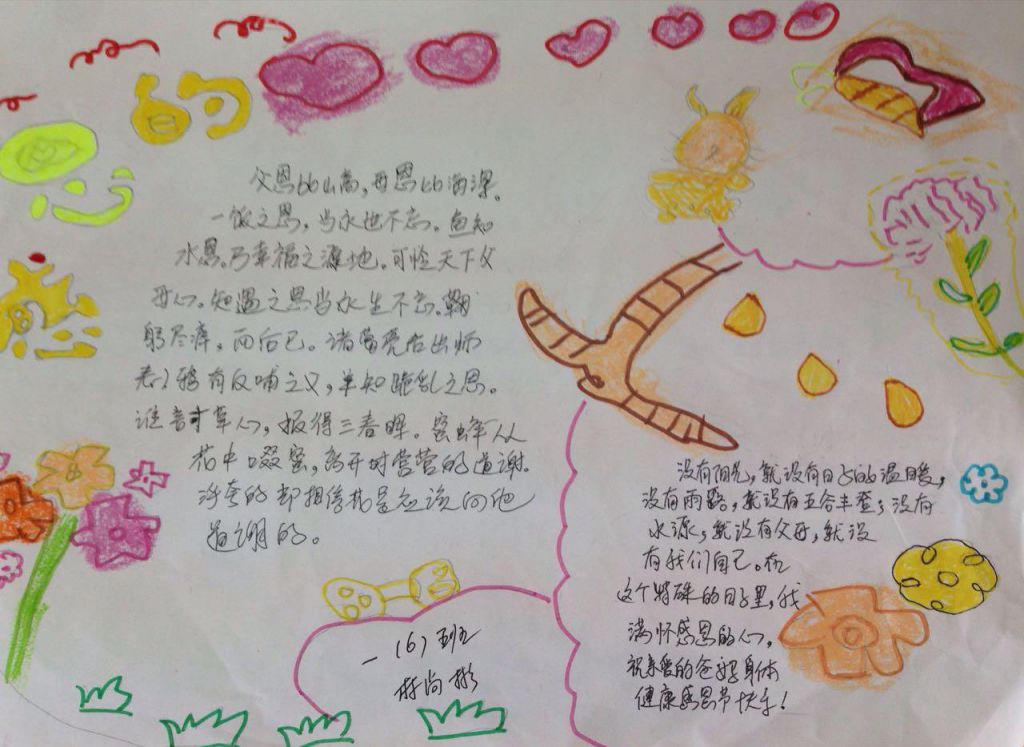 感恩的心
父恩比山高，母恩比海深。
一饭之恩，当永世不忘。鱼知
水恩，乃幸福之源地。可怜天下父
母心。知遇之恩当永生不忘。鞠
躬尽瘁，而后已。诸葛亮《出师
表》鸦有反哺之义，羊知跪乳之恩。
谁言寸草心，报得三春晖。蜜蜂从
花中啜蜜，离开时营营的道谢。
浮夸的却相信花是应该向他
道谢的。
没有阳光，就没有日子的温暖，
没有雨露，就没有五谷丰登；没有
水源，就没有父母，就没
有我们自己。在
这个特殊的日子里，我
满怀感恩的心，
祝亲爱的爸妈身体
健康感恩节快乐！
一（6）班
尚彬